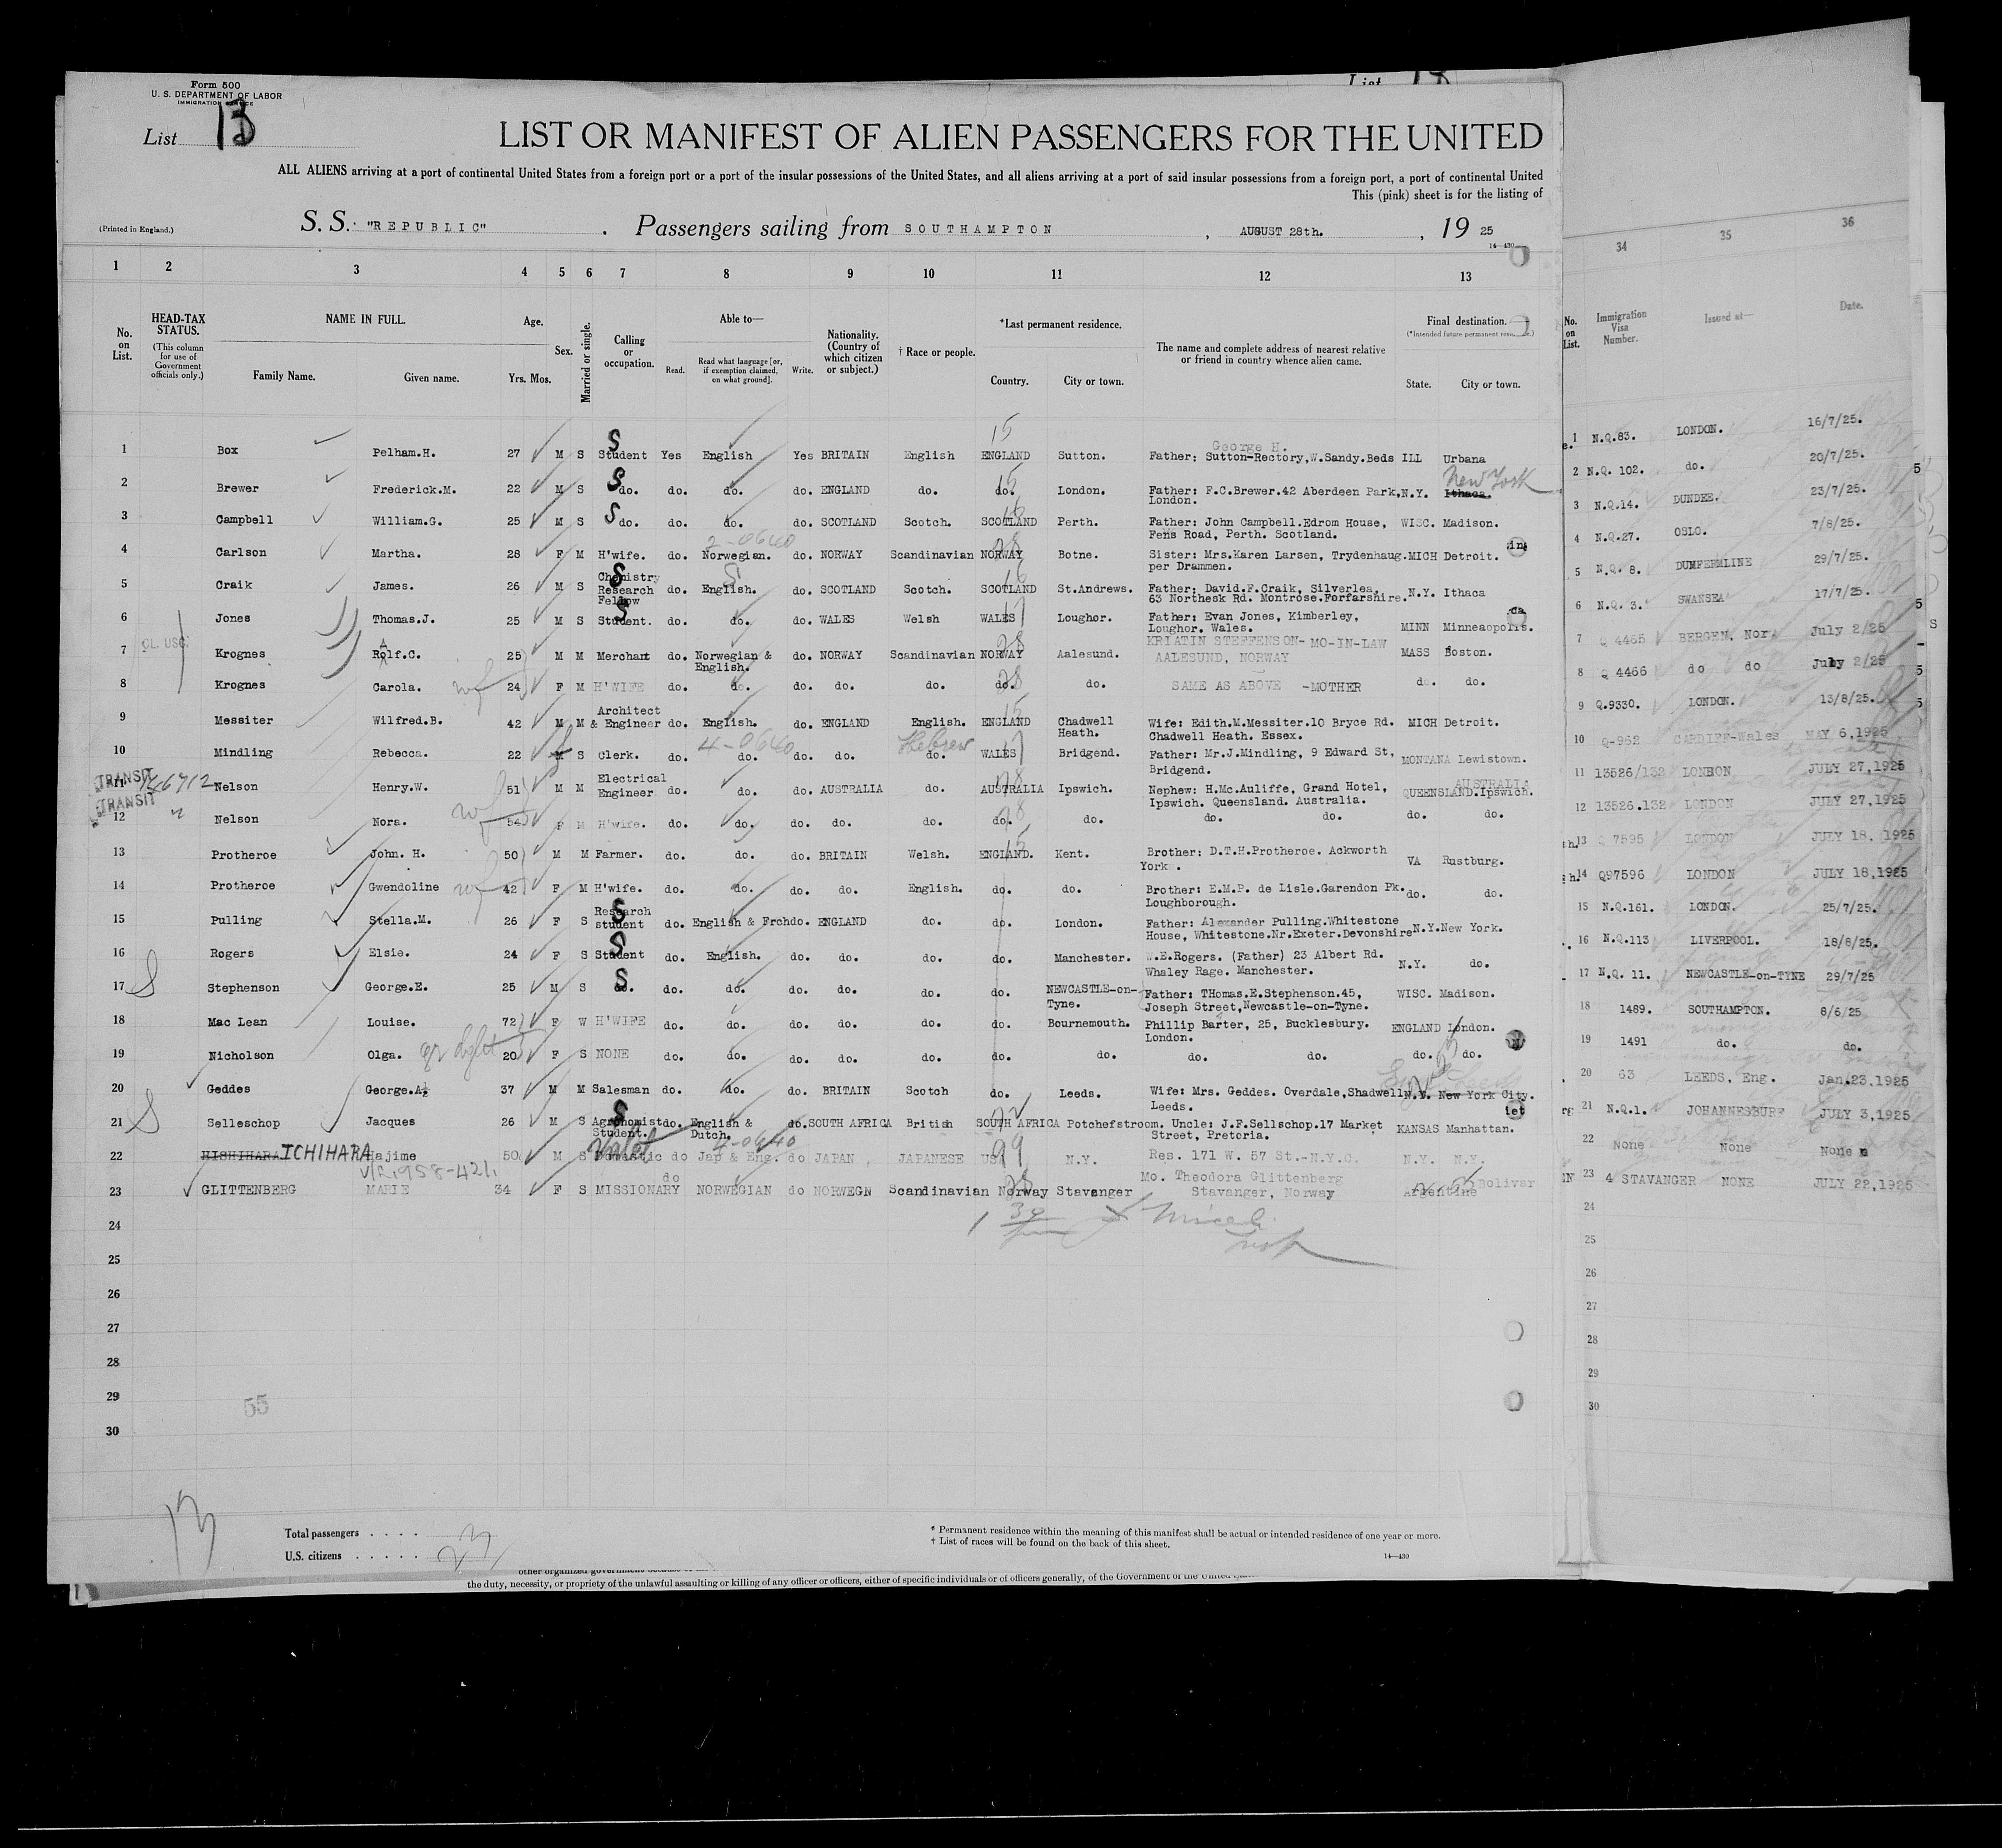 Form 500
U. S. DEPARTMENT OF LABOR
IMMIGRATION SERVICE
List 13
LIST OR MANIFEST OF ALIEN PASSENGERS FOR THE UNITED
ALL ALIENS arriving at a port of continental United States from a foreign port or a port of the insular possessions of the United States, and all aliens arriving at a port of said insular possessions from a foreign port, a port of continental United
This (pink) sheet is for the listing of
(Printed in England.) S. S. "REPUBLIC" . Passengers sailing from SOUTHAMPTON , AUGUST 28th. , 19 25
14—430
1 2 3 4 5 6 7 8 9 10 11 12 13 34 35 36
No. on List. HEAD-TAX STATUS. (This column for use of Government officials only.) NAME IN FULL. Family Name. Given name. Age. Yrs. Mos. Sex. Married or single. Calling or occupation. Able to— Read. Read what language [or, if exemption claimed, on what ground]. Write. Nationality. (Country of which citizen or subject.) † Race or people. *Last permanent residence. Country. City or town. The name and complete address of nearest relative or friend in country whence alien came. Final destination. (*Intended future permanent residence.) State. City or town. No. on List. Immigration Visa Number. Issued at— Date.
1 Box Pelham.H. 27 M S Student Yes English Yes BRITAIN English ENGLAND Sutton. George H. Father: Sutton-Rectory,W.Sandy.Beds ILL Urbana 1 N.Q.83. LONDON. 16/7/25.
2 Brewer Frederick.M. 22 M S do. do. do. do. ENGLAND do. do. London. Father: F.C.Brewer.42 Aberdeen Park, London. N.Y. Ithaca. New York 2 N.Q. 102. do. 20/7/25.
3 Campbell William.G. 25 M S do. do. do. do. SCOTLAND Scotch. SCOTLAND Perth. Father: John Campbell.Edrom House, Fens Road, Perth. Scotland. WISC. Madison. 3 N.Q.14. DUNDEE. 23/7/25.
4 Carlson Martha. 28 F M H'wife. do. Norwegian. 2-0640 do. NORWAY Scandinavian NORWAY Botne. Sister: Mrs.Karen Larsen, Trydenhaug. per Drammen. MICH Detroit. 4 N.Q.27. OSLO. 7/8/25.
5 Craik James. 26 M S Chemistry Research Fellow do. English. do. SCOTLAND Scotch. SCOTLAND St.Andrews. Father: David.F.Craik, Silverlea, 63 Northesk Rd. Montrose.Forfarshire. N.Y. Ithaca 5 N.Q. 8. DUMFERMLINE 29/7/25.
6 Jones Thomas.J. 25 M S Student. do. do. do. WALES Welsh WALES Loughor. Father: Evan Jones, Kimberley, Loughor. Wales. MINN Minneaopolis. 6 N.Q. 3. SWANSEA 17/7/25.
7 Krognes Rolf.C. 25 M M Merchant do. Norwegian & English. do. NORWAY Scandinavian NORWAY Aalesund. KRIATIN STEFFENSON- MO-IN-LAW AALESUND, NORWAY MASS Boston. 7 Q 4465 BERGEN, Nor. July 2/25
8 Krognes Carola. 24 F M H'WIFE do. do. do. do. do. do. do. SAME AS ABOVE -MOTHER do. do. 8 Q 4466 do do July 2/25
9 Messiter Wilfred.B. 42 M M Architect & Engineer do. English. do. ENGLAND English. ENGLAND Chadwell Heath. Wife: Edith.M.Messiter.10 Bryce Rd. Chadwell Heath. Essex. MICH Detroit. 9 Q.9330. LONDON. 13/8/25.
10 Mindling Rebecca. 22 M S Clerk. do. 4-0640 do. do. do. Hebrew do. WALES Bridgend. Father: Mr.J.Mindling, 9 Edward St, Bridgend. MONTANA Lewistown. 10 Q-962 CARDIFF-Wales MAY 6,1925
TRANSIT 11 Nelson Henry.W. 51 M M Electrical Engineer do. do. do. AUSTRALIA do. AUSTRALIA Ipswich. Nephew: H.Mc.Auliffe, Grand Hotel, Ipswich. Queensland. Australia. AUSTRALIA QUEENSLAND.Ipswich. 11 13526/132 LONDON JULY 27,1925
TRANSIT 12 Nelson Nora. 54 F M H'wife. do. do. do. do. do. do. do. do. do. do. do. 12 13526.132 LONDON JULY 27,1925
13 Protheroe John. H. 50 M M Farmer. do. do. do. BRITAIN Welsh. ENGLAND. Kent. Brother: D.T.H.Protheroe. Ackworth Yorks. VA Rustburg. 13 Q 7595 LONDON JULY 18. 1925
14 Protheroe Gwendoline 42 F M H'wife. do. do. do. do. English. do. do. Brother: E.M.P. de Lisle.Garendon Pk. Loughborough. do. do. 14 Q97596 LONDON JULY 18,1925
15 Pulling Stella.M. 26 F S Research student do. English & Frch do. ENGLAND do. do. London. Father: Alexander Pulling.Whitestone House, Whitestone.Nr.Exeter.Devonshire N.Y. New York. 15 N.Q.161. LONDON. 25/7/25.
16 Rogers Elsie. 24 F S Student do. English. do. do. do. do. Manchester. W.E.Rogers. (Father) 23 Albert Rd. Whaley Rage. Manchester. N.Y. do. 16 N.Q.113 LIVERPOOL. 18/8/25.
17 Stephenson George.E. 25 M S do. do. do. do. do. do. do. NEWCASTLE-on-Tyne. Father: THomas.E.Stephenson.45, Joseph Street,Newcastle-on-Tyne. WISC. Madison. 17 N.Q. 11. NEWCASTLE-on-TYNE 29/7/25
18 Mac Lean Louise. 72 F W H'WIFE do. do. do. do. do. do. Bournemouth. Phillip Barter, 25, Bucklesbury. London. ENGLAND London. 18 1489. SOUTHAMPTON. 8/6/25
19 Nicholson Olga. 20 F S NONE do. do. do. do. do. do. do. do. do. do. do. 19 1491 do. do.
20 Geddes George.A. 37 M M Salesman do. do. do. BRITAIN Scotch do. Leeds. Wife: Mrs. Geddes. Overdale,Shadwell, Leeds. N.Y. New York City. 20 63 LEEDS, Eng. Jan.23,1925
21 Selleschop Jacques 26 M S Agronomist Student. do. English & Dutch. do. SOUTH AFRICA British SOUTH AFRICA Potchefstroom. Uncle: J.F.Sellschop.17 Market Street, Pretoria. KANSAS Manhattan. 21 N.Q.1. JOHANNESBURF JULY 3,1925
22 HISHIHARA ICHIHARA Hajime 50 M S Domestic Valet do Jap & Eng. 4-0640 do JAPAN JAPANESE USA N.Y. Res. 171 W. 57 St.-N.Y.C. N.Y. N.Y. 22 None None None
23 GLITTENBERG MARIE 34 F S MISSIONARY do NORWEGIAN do NORWEGN Scandinavian Norway Stavanger Mo. Theodora Glittenberg Stavanger, Norway Argentine Bolivar 23 4 STAVANGER NONE JULY 22,1925
24 24
25 25
26 26
27 27
28 28
29 29
30 30
55
13
Total passengers . . . .
U.S. citizens . . . . .
* Permanent residence within the meaning of this manifest shall be actual or intended residence of one year or more.
† List of races will be found on the back of this sheet.
14—430
the duty, necessity, or propriety of the unlawful assaulting or killing of any officer or officers, either of specific individuals or of officers generally, of the Government of the United